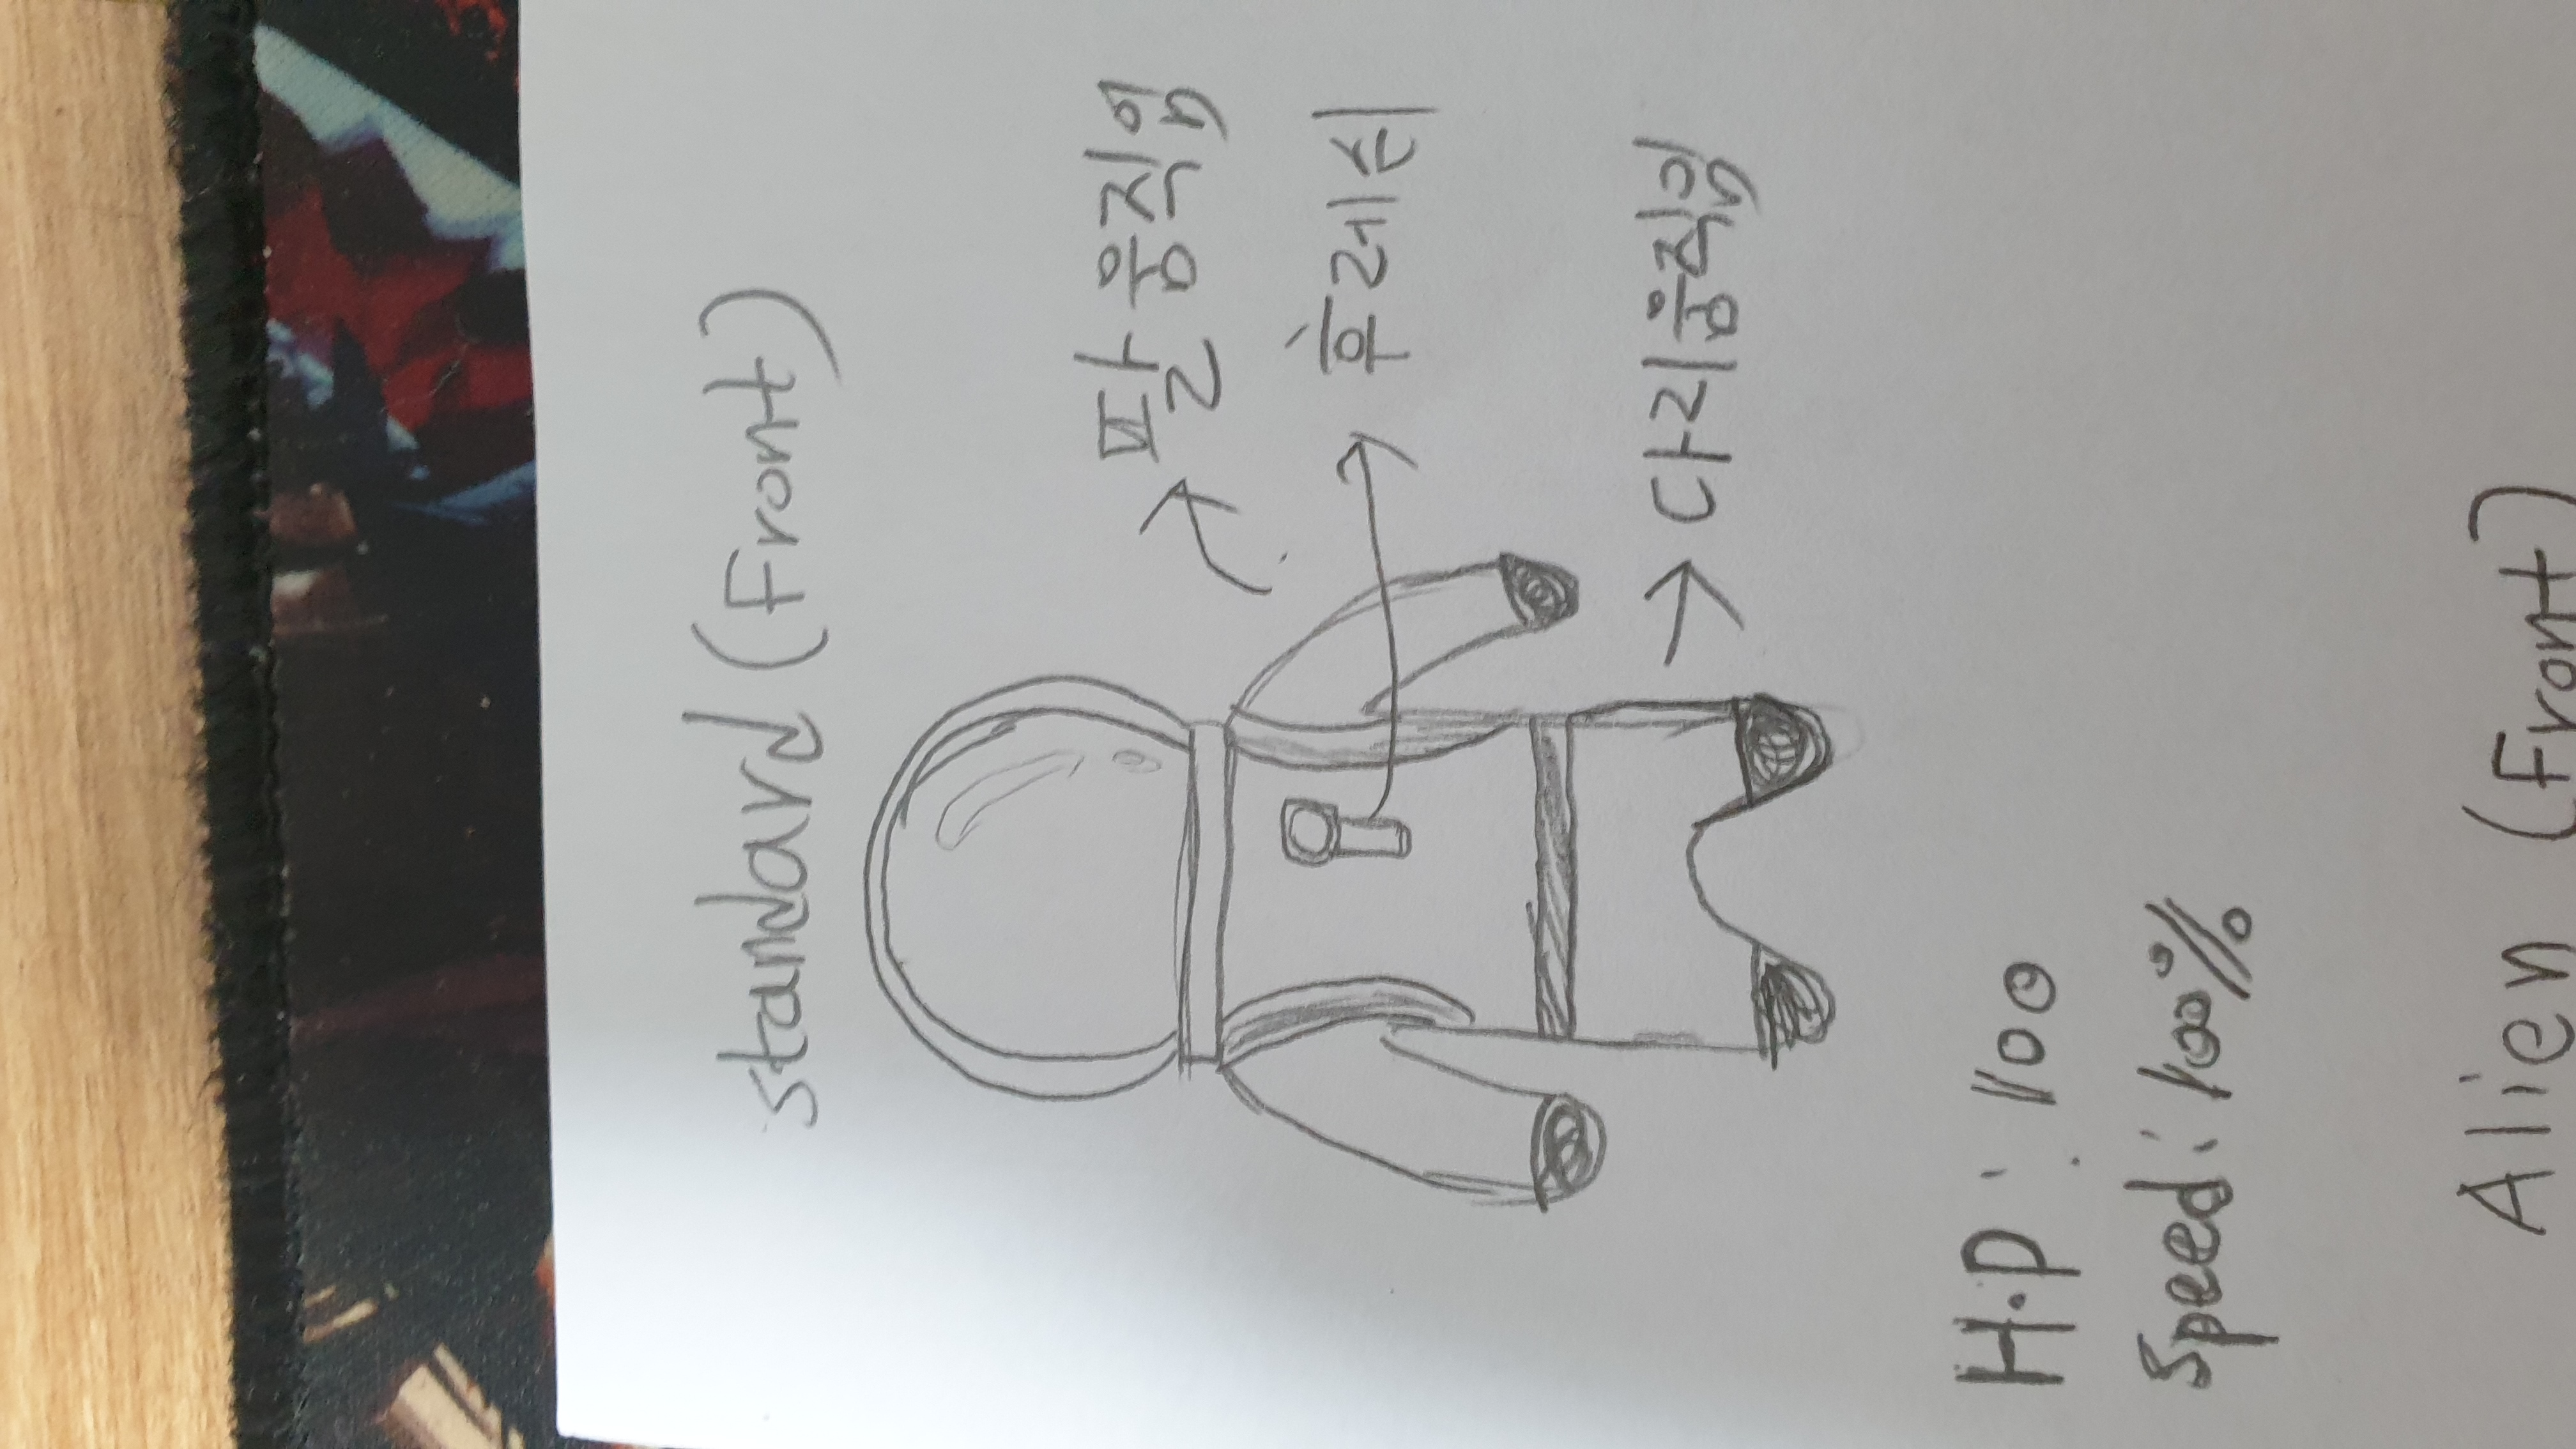 standard (Front)
팔 움직임
후레쉬
다리움직임
H.P : 100
Speed : 100%
Alien (Front)